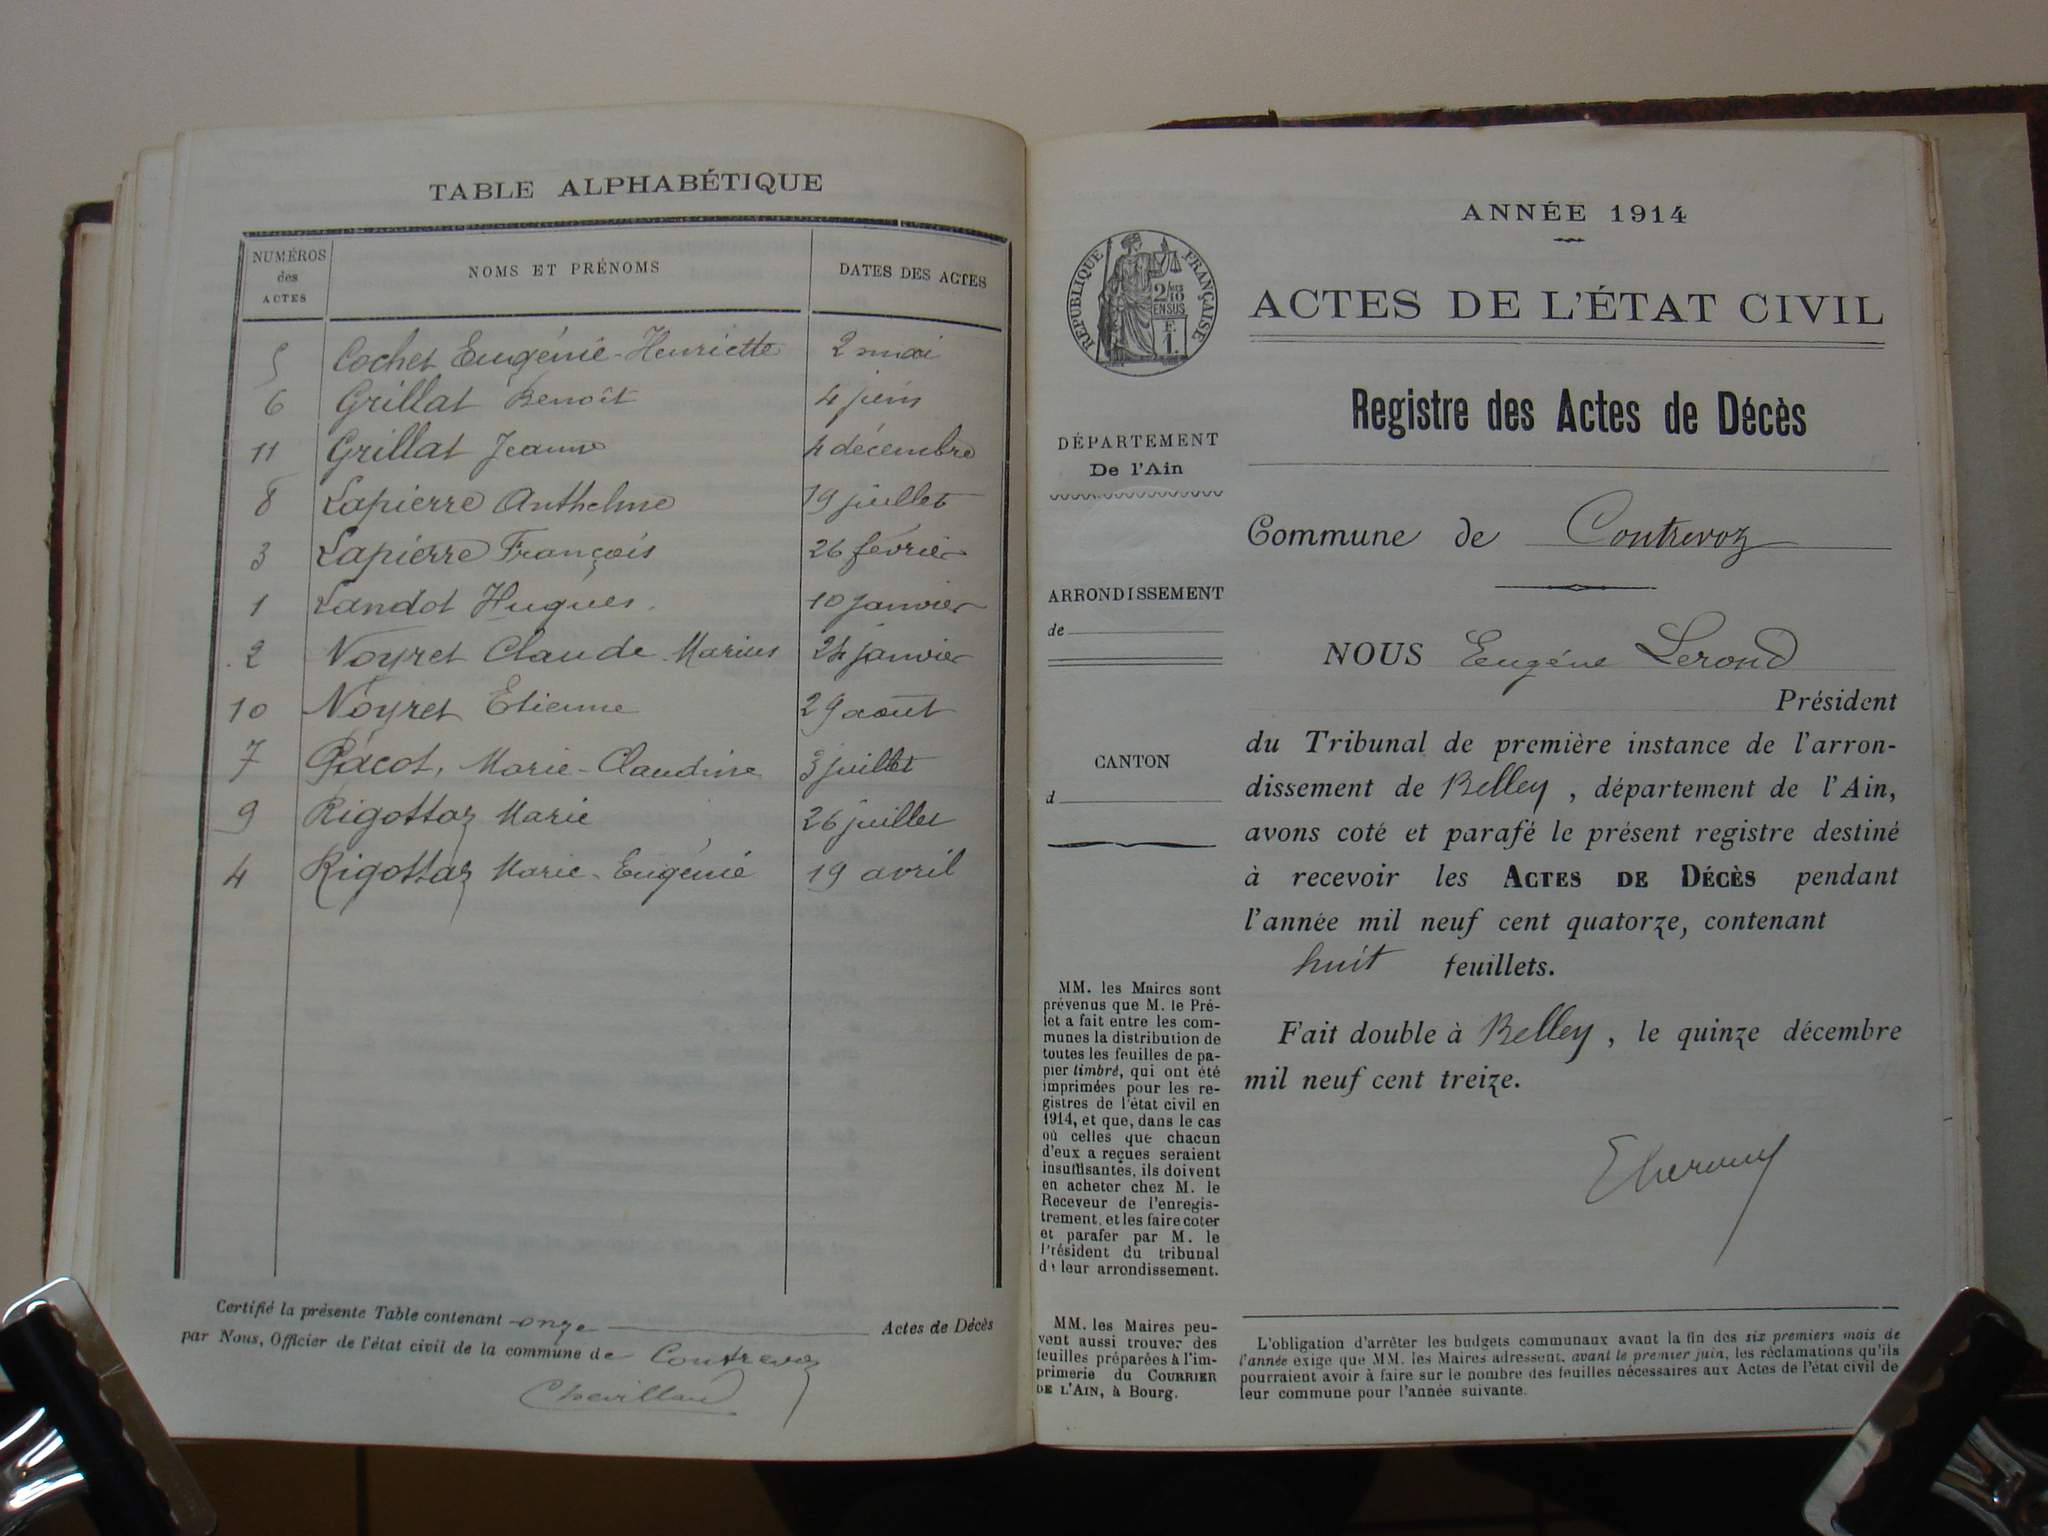 TABLE ALPHABÉTIQUE
NUMÉROS des ACTES NOMS ET PRÉNOMS DATES DES ACTES
5 Cochet Eugénie-Henriette 2 mai
6 Grillat Benoît 4 juin
11 Grillat Jeanne 4 décembre
8 Lapierre Anthelme 19 juillet
3 Lapierre François 26 février
1 Landot Hugues. 10 janvier
2 Noyret Claude-Marius 24 janvier
10 Noyret Etienne 29 août
7 Pacot, Marie-Claudine 3 juillet
9 Rigottaz Marie 26 juillet
4 Rigottaz Marie-Eugénie 19 avril
Certifié la présente Table contenant onze Actes de Décès
par Nous, Officier de l'état civil de la commune de Contrevoz
Chevillard
ANNÉE 1914
RÉPUBLIQUE FRANÇAISE
2/10
EN SUS
F.
1.
ACTES DE L'ÉTAT CIVIL
Registre des Actes de Décès
DÉPARTEMENT
De l'Ain
Commune de Contrevoz
ARRONDISSEMENT
de
CANTON
d
NOUS Eugène Lerond
Président
du Tribunal de première instance de l'arron-
dissement de Belley, département de l'Ain,
avons coté et parafé le présent registre destiné
à recevoir les ACTES DE DÉCÈS pendant
l'année mil neuf cent quatorze, contenant
huit feuillets.
Fait double à Belley, le quinze décembre
mil neuf cent treize.
MM. les Maires sont
prévenus que M. le Pré-
fet a fait entre les com-
munes la distribution de
toutes les feuilles de pa-
pier timbré, qui ont été
imprimées pour les re-
gistres de l'état civil en
1914, et que, dans le cas
où celles que chacun
d'eux a reçues seraient
insuffisantes, ils doivent
en acheter chez M. le
Receveur de l'enregis-
trement, et les faire coter
et parafer par M. le
Président du tribunal
de leur arrondissement.
MM. les Maires peu-
vent aussi trouver des
feuilles préparées à l'im-
primerie du COURRIER
DE L'AIN, à Bourg.
L'obligation d'arrêter les budgets communaux avant la fin des six premiers mois de
l'année exige que MM. les Maires adressent, avant le premier juin, les réclamations qu'ils
pourraient avoir à faire sur le nombre des feuilles nécessaires aux Actes de l'état civil de
leur commune pour l'année suivante.